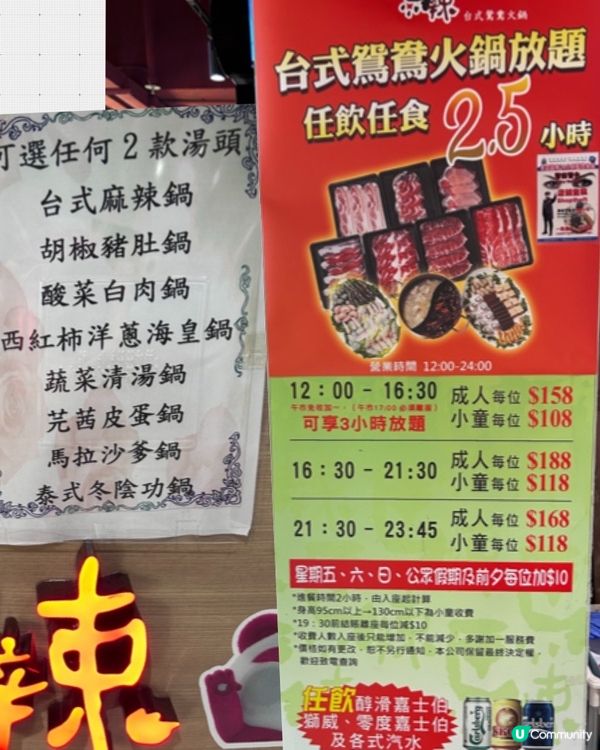 可選任何2款湯頭
台式麻辣鍋
胡椒豬肚鍋
酸菜白肉鍋
西紅柿洋蔥海皇鍋
蔬菜清湯鍋
芫茜皮蛋鍋
馬拉沙爹鍋
泰式冬陰功鍋
辣
辣
台式鴛鴦火鍋
台式鴛鴦火鍋放題
任飲任食 2.5 小時
營業時間 12:00-24:00
12:00 - 16:30 成人每位 $158
小童每位 $108
可享3小時放題
16:30 - 21:30 成人每位 $188
小童每位 $118
21:30 - 23:45 成人每位 $168
小童每位 $118
星期五、六、日、公眾假期及前夕每位加$10
*進餐時間2小時，由入座起計算
*身高95cm以上→130cm以下為小童收費
*19：30前結賬離座每位減$10
*收費人數入座後只能增加，不能減少，多謝加一服務費
*價格如有更改，恕不另行通知，本公司保留最終決定權，
歡迎致電查詢
任飲 醇滑嘉士伯
獅威、零度嘉士伯
及各式汽水
Carlsberg
Carlsberg
U Community